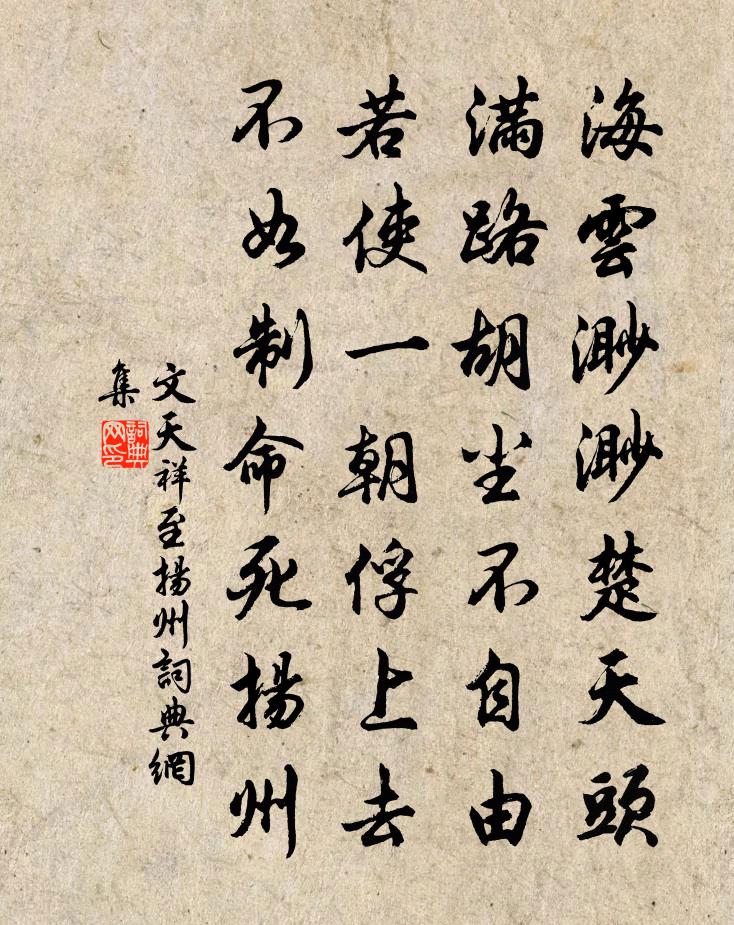 海雲渺渺楚天頭
滿路胡坐不自由
若使一朝俘上去
不如制命死揚州
文天祥至揚州詞典網
集
詞典
网印